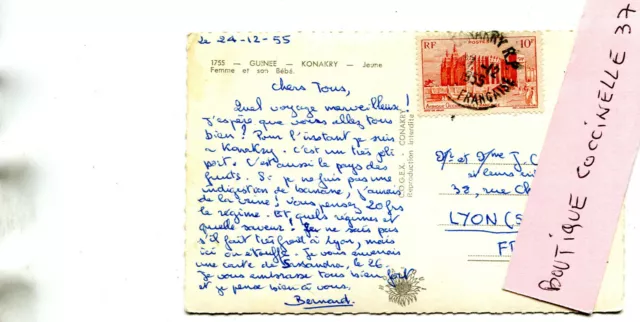 le 24-12-55
1755 — GUINEE — KONAKRY — Jeune
Femme et son Bébé.
Chers Tous,
Quel voyage merveilleux !
J'espère que vous allez tous
bien ! Pour l'instant je suis
à Konakry. c'est un très joli
port. C'est aussi le pays des
fruits. Si je ne fais pas une
indigestion de banane, j'aurais
de la veine ! Vous pensez 20frs
le régime. Et quels régimes et
quelle saveur ! Je ne sais pas
s'il fait très froid à Lyon, mais
ici on étouffe. Je vous enverrai
une carte de Sassandra, le 26.
Je vous embrasse tous bien fort
et je pense bien à vous.
Bernard.
C.O.G.E.X. - CONAKRY
Reproduction interdite
RF POSTES 10F
KONAKRY
FRANÇAISE
Mr et Mme J. C
et leurs
32, rue Ch
LYON (S
F
BOUTIQUE COCCINELLE 37